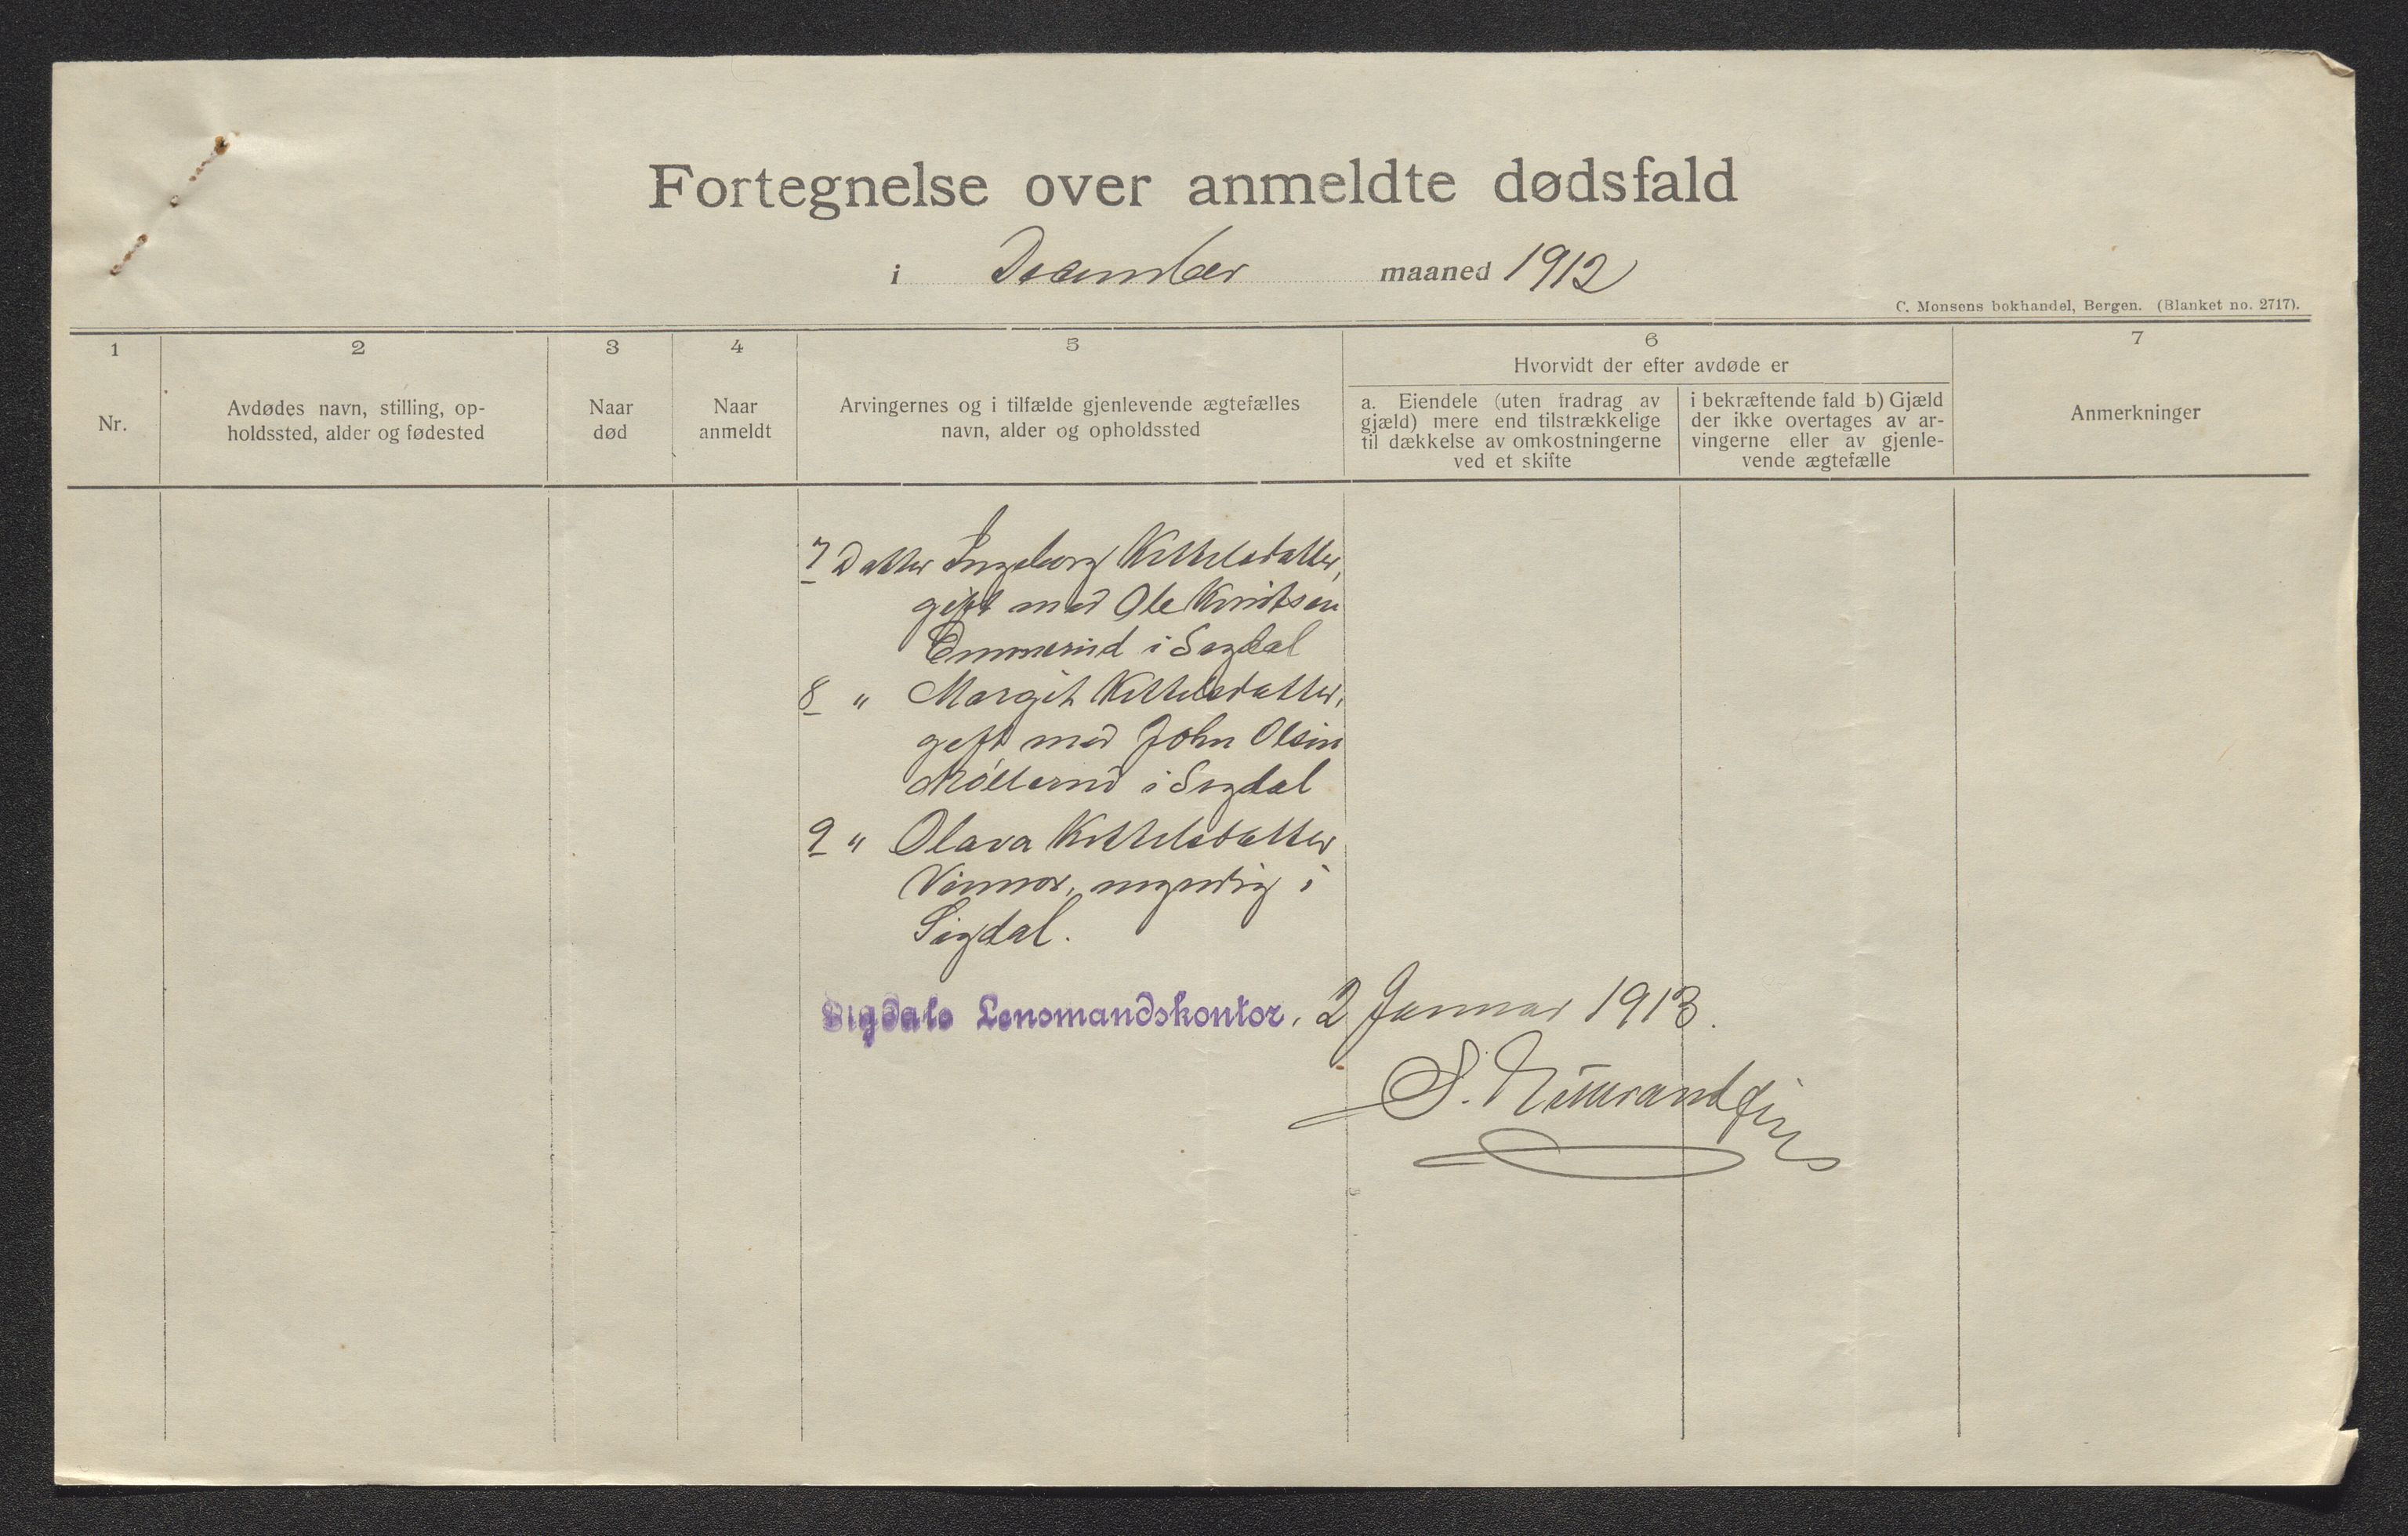 Fortegnelse over anmeldte dødsfald
i December maaned 1912
C. Monsens bokhandel, Bergen. (Blanket no. 2717).
1 2 3 4 5 6 7
Hvorvidt der efter avdøde er
Nr.
Avdødes navn, stilling, op-
holdssted, alder og fødested
Naar
død
Naar
anmeldt
Arvingernes og i tilfælde gjenlevende ægtefælles
navn, alder og opholdssted
a. Eiendele (uten fradrag av
gjæld) mere end tilstrækkelige
til dækkelse av omkostningerne
ved et skifte
i bekræftende fald b) Gjæld
der ikke overtages av ar-
vingerne eller av gjenle-
vende ægtefælle
Anmerkninger
7 Datter Ingeborg Kittelsdatter,
gift med Ole Knudsen
i Sigdal
8 " Margit Kittelsdatter,
gift med John Olsen
i Sigdal
9 " Olava Kittelsdatter
myndig i
Sigdal.
Sigdals Lensmandskontor, 2 Januar 1913.